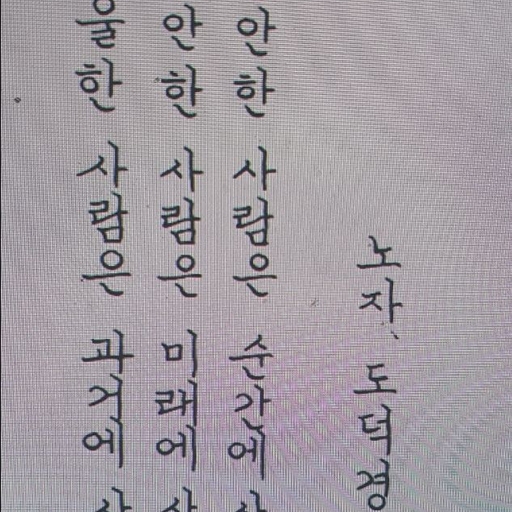 울한 사람은 과거에
안한 사람은 미래에
안한 사람은 순간에
노자, 도덕경